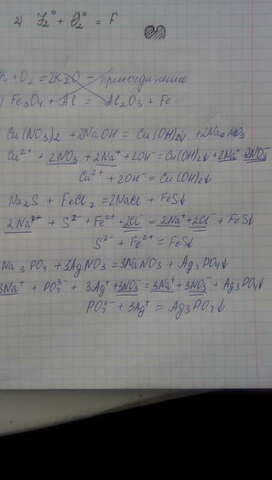 2) F₂⁰ + O₂⁰ = F
+ O₂ = 2K₂O =
Fe₃O₄ + Al = Al₂O₃ + Fe
Cu(NO₃)₂ + 2NaOH = Cu(OH)₂↓ + 2NaNO₃
Cu²⁺ + 2NO₃⁻ + 2Na⁺ + 2OH⁻ = Cu(OH)₂↓ + 2Na⁺ + 2NO₃⁻
Cu²⁺ + 2OH⁻ = Cu(OH)₂↓
Na₂S + FeCl₂ = 2NaCl + FeS↓
2Na⁺ + S²⁻ + Fe²⁺ + 2Cl⁻ = 2Na⁺ + 2Cl⁻ + FeS↓
S²⁻ + Fe²⁺ = FeS↓
Na₃PO₄ + 3AgNO₃ = 3NaNO₃ + Ag₃PO₄↓
3Na⁺ + PO₄³⁻ + 3Ag⁺ + 3NO₃⁻ = 3Na⁺ + 3NO₃⁻ + Ag₃PO₄↓
PO₄³⁻ + 3Ag⁺ = Ag₃PO₄↓